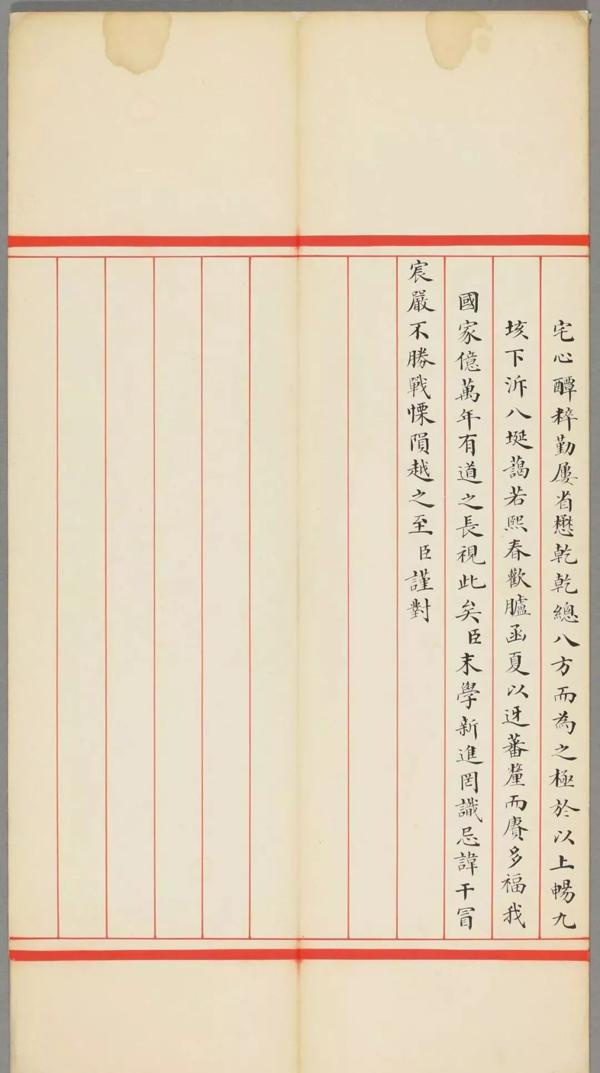 宅心醰粹勤屢省懋乾乾總八方而為之極於以上暢九
垓下泝八埏藹若熙春歡臚函夏以迓蕃釐而賡多福我
國家億萬年有道之長視此矣臣末學新進罔識忌諱干冒
宸嚴不勝戰慄隕越之至臣謹對